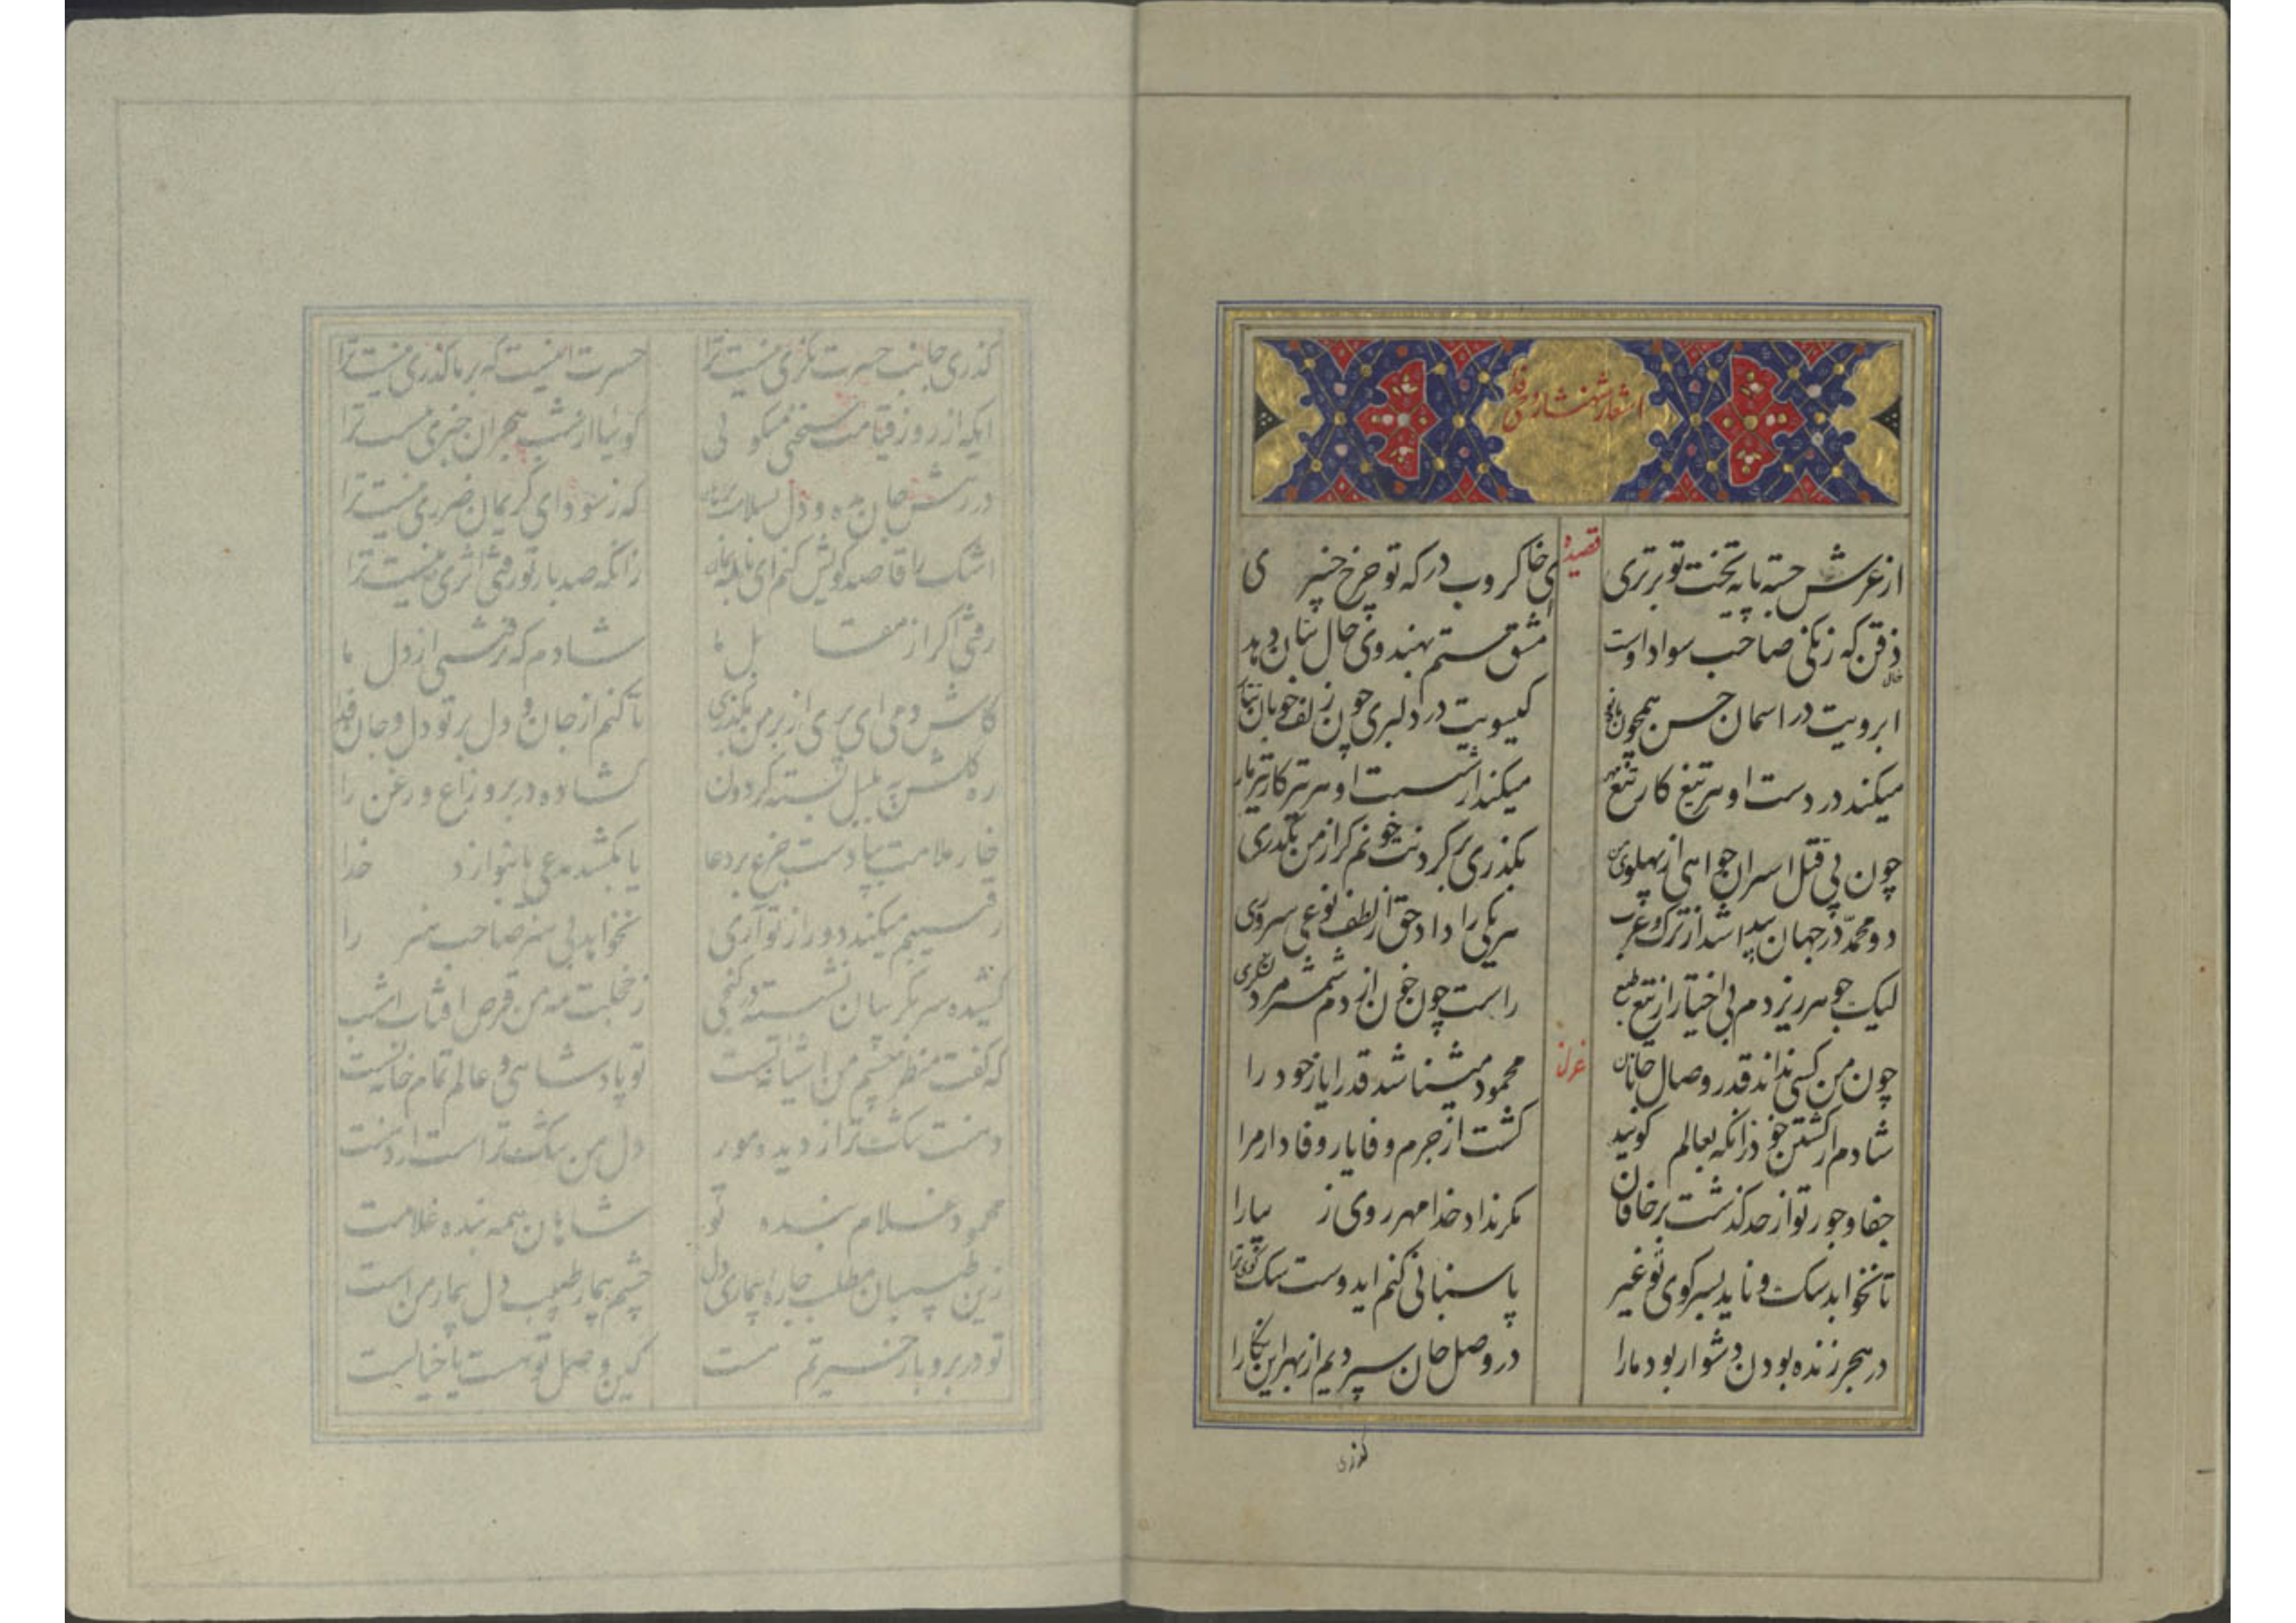 اشعار شهنشاه روحی فداه
قصیده
از عرش جسته پایه تخت تو برتری
ی خاکروب درکه تو چرخ چنبری
ذقن که زنگی صاحب سواد اوست
خال
مشق ستم بهندوی خال بتان دهد
ابرویت در اسمان حسن همچون ماه نو
کیسویت در دلبری چون زلف خوبان
میکند در دست او هر تیغ کار تیغ
میکند از شست او هر تیر کار تیر
چون پی قتل اسیران خواهی از پهلوی من
بکذری بر کردنت خونم کر از من بکذری
دو محمد در جهان پیدا شد از ترک و عرب
هر یکی را داد حق از لطف نوعی سروری
لیک جوهر ریزدم بی اختیار از تیغ طبع
راست چون خون از دم شمشیر مرد لشکری
غزل
چون من کسی نداند قدر وصال جانان
محمود میشناشد قدر ایاز خود را
شادم از کشتن خود زانکه بعالم کویند
کشت از جرم وفا یار وفادار مرا
جفا و جور تو از حد کذشت بر خاقان
مکر نداد خدا مهر روی زیبا را
تا نخوابد سک و ناید بسر کوی تو غیر
پاسبانی کنم ایدوست سک کوی ترا
در هجر زنده بودن دشوار بود ما را
در وصل جان سپردیم از بهر این نکارا
کذری
کذری جانب حسرت نکری نیست ترا
حسرت اینست که بر ما کذری نیست ترا
ایکه از روز قیامت سخنی میکوئی
کوئیا از شب هجران خبری نیست ترا
در رهش جان ده و دل بسلامت
که ز سودای کریمان ضرری نیست ترا
اشک را قاصد کویش کنم ای ناله بمان
زانکه صد بار تو رفتی اثری نیست ترا
رفتی اکر از مقابل ما
شادم که نرفتی از دل ما
کاش دمی ای پری از بر من بکذری
تا کنم از جان و دل بر تو دل و جان فدا
ره کلشن به بلبل بسته کردون
کشاده در بر و زاغ و زغن را
خار ملامت بپا دست جزع بر دعا
یا بکشد مدعی یا بنوازد خدا
رقیبم میکند دور از تو آری
نخواهد بی هنر صاحب هنر را
کشیده سر بکریبان نشسته در کنجی
ز خجلت مه من قرص افتاب امشب
که کفت منظر چشم من اشیانه تست
تو پادشاهی و عالم تمام خانه تست
دهنت تنک تر از دیده مور
دل من تنک تر است از دهنت
محمود غلام بنده تو
شاهان همه بنده غلامت
زین طبیبان مطلب چاره بیماری دل
چشم بیمار طبیب دل بیمار من است
تو در بر و باز حیرتم هست
کین وصل تو هست یا خیالست